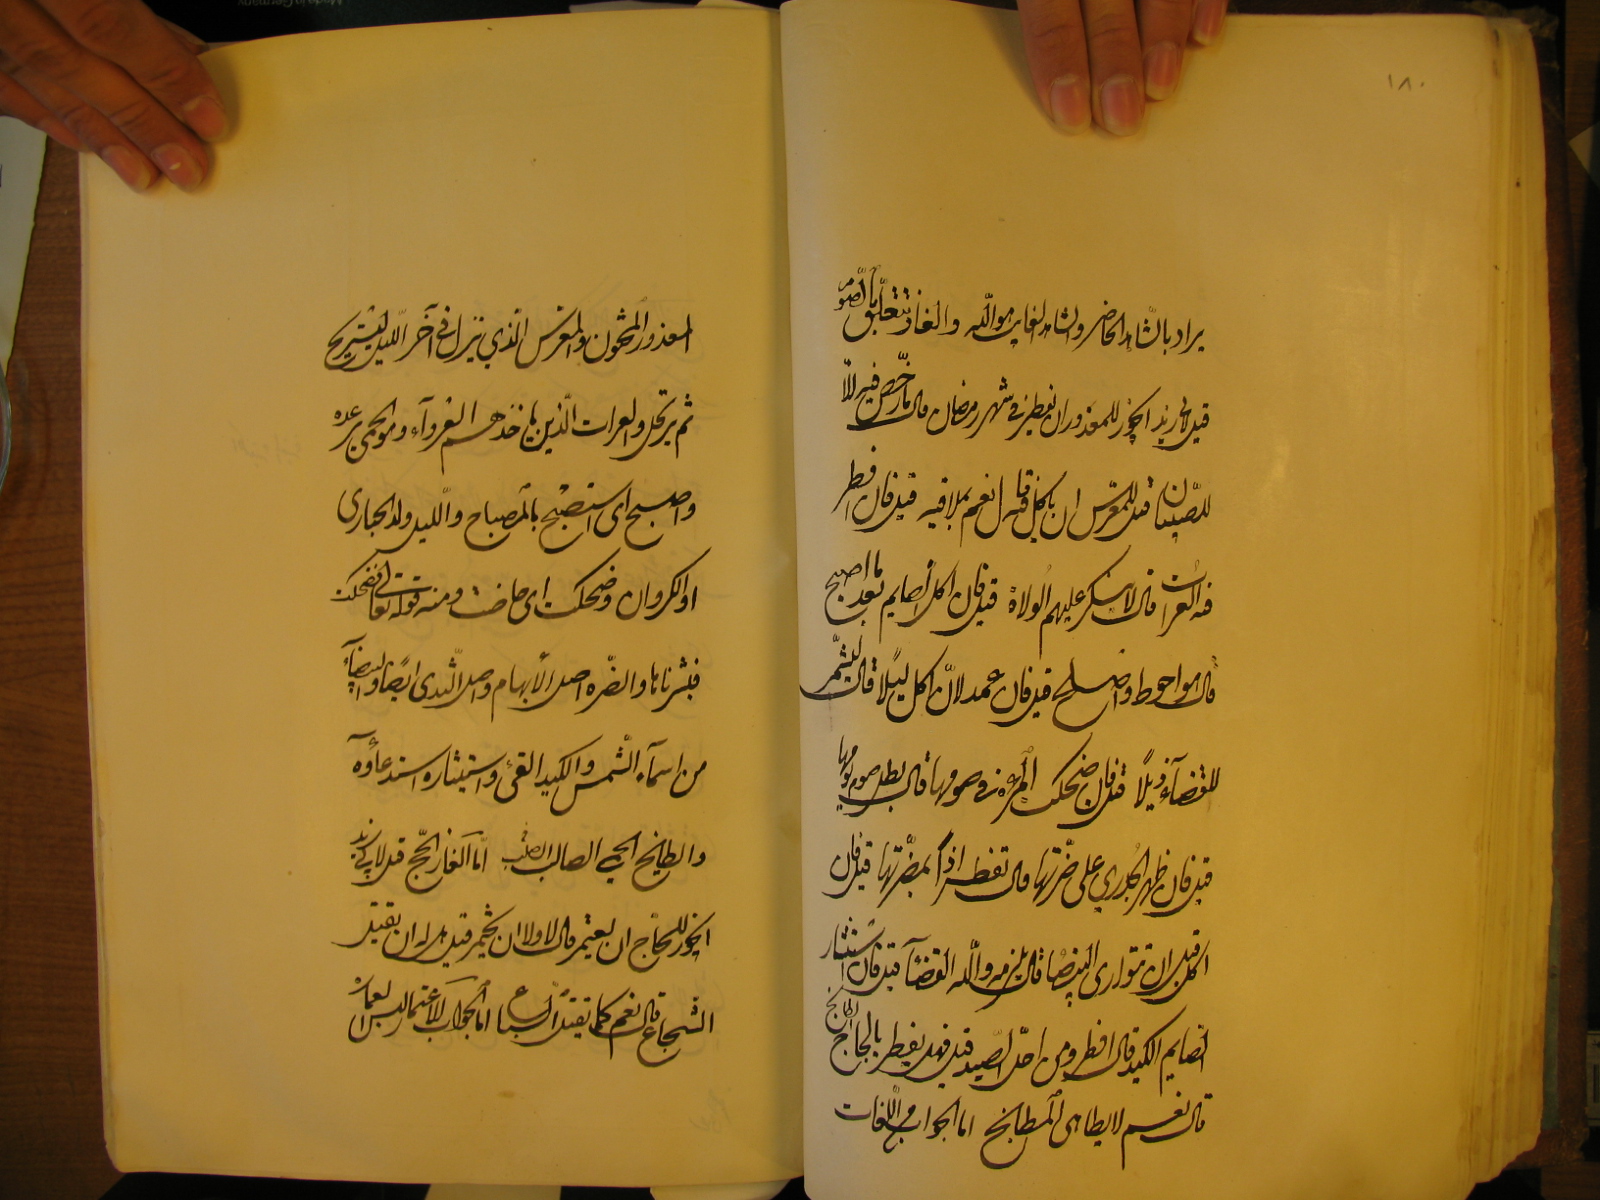 ١٨٠
يراد بالشاهد الحاضر والشاهد الغايب هو الله والغاز تتعلق بالصوم
قيل لابي زيد ايجوز للمعذور ان يفطر في شهر رمضان قال ما رخص فيه الا
للصبيان قيل للمعرس ان ياكل فيه قال نعم بملا فيه قيل فان افطر
فيه العراة قال لا ينكر عليهم الولاة قيل فان اكل الصايم بعد ما اصبح
قال هو احوط واصلح قيل فان عمد لان اكل ليلا قال ليشمر
للقضآء ذيلا قيل فان ضحكت المرءة في صومها قال بطل صوم يومها
قيل فان ظهر الجدري على ضرتها قال تفطر اذا بمضرتها قيل فان
اكل قبل ان تتوارى البيضا قال يلزمه والله القضآ قيل فان استشار
الصايم الكيد قال افطر ومن احل الصيد قيل فهل يفطر بالحاح الطابخ
قال نعم لا بطاهي المطابخ اما الجواب في اللغات
المعذور المختون والمعرس الذي ينزل في آخر الليل ليستريح
ثم يرتحل والعراة الذين تاخذهم العروآء وهو الحمى برعده
واصبح اى استصبح بالمصباح والليل ولد الحبارى
او الكروان وضحكت اى حاضت ومنه قوله تعالى فضحكت
فبشرناها والضره اصل الابهام واصل الثدى ايضا والبيضآء
من اسمآء الشمس والكيد القئ واستيثاره استدعاؤه
والطابخ الحمى الصالب الصلب اما الغاز الحج قيل لابي زيد
ايجوز للحاج ان يعتمر قال لا ولا ان يختمر قيل هل له ان يقتل
الشجاع قال نعم كما يقتل السباع اما الجواب الاعتمار لبس العمارة